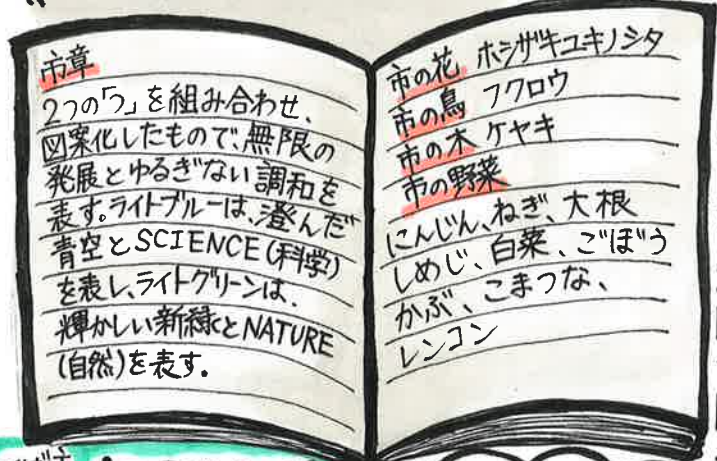 市章
2つの「つ」を組み合わせ、
図案化したもので、無限の
発展とゆるぎない調和を
表す。ライトブルーは、澄んだ
青空とSCIENCE(科学)
を表し、ライトグリーンは、
輝かしい新緑とNATURE
(自然)を表す。
市の花 ホシザキユキノシタ
市の鳥 フクロウ
市の木 ケヤキ
市の野菜
にんじん、ねぎ、大根
しめじ、白菜、ごぼう
かぶ、こまつな、
レンコン